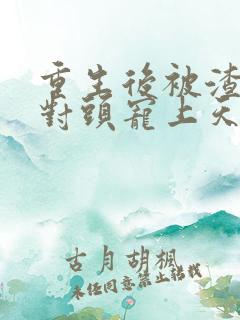 重生後被渣
對頭寵上天
古月胡楓
未經同意禁止轉載